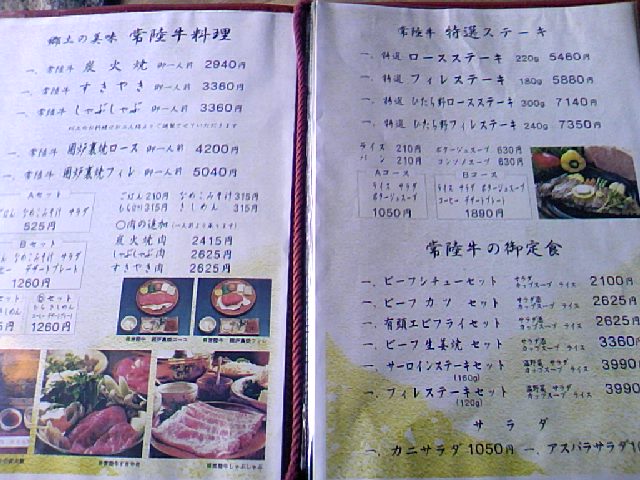 郷土の美味 常陸牛料理
一、常陸牛 炭火焼 御一人前 2940円
一、常陸牛 すきやき 御一人前 3360円
一、常陸牛 しゃぶしゃぶ 御一人前 3360円
一、常陸牛 囲炉裏焼ロース 御一人前 4200円
一、常陸牛 囲炉裏焼フィレ 御一人前 5040円
Aセット
ごはん なめこみそ汁 サラダ
525円
ごはん 210円 なめこみそ汁 315円
きしめん 315円
〇肉の追加
炭火焼肉 2415円
しゃぶしゃぶ肉 2625円
すきやき肉 2625円
Bセット
なめこみそ汁 サラダ
デザートプレート
1260円
セット
1260円
常陸牛 特選ステーキ
一、特選 ロースステーキ 220g 5460円
一、特選 フィレステーキ 180g 5880円
一、特選 ひたち野ロースステーキ 300g 7140円
一、特選 ひたち野フィレステーキ 240g 7350円
ライス 210円 ポタージュスープ 630円
パン 210円 コンソメスープ 630円
Aコース
ライス サラダ
ポタージュスープ
1050円
Bコース
ライス サラダ ポタージュスープ
コーヒー デザートプレート
1890円
常陸牛の御定食
一、ビーフシチューセット サラダ カップスープ ライス 2100円
一、ビーフカツ セット サラダ カップスープ ライス 2625円
一、有頭エビフライセット サラダ カップスープ ライス 2625円
一、ビーフ生姜焼 セット サラダ カップスープ ライス 3360円
一、サーロインステーキセット (160g) 温野菜 サラダ カップスープ ライス 3990円
一、フィレステーキセット (120g) 温野菜 サラダ カップスープ ライス 3990円
サラダ
一、カニサラダ 1050円 一、アスパラサラダ